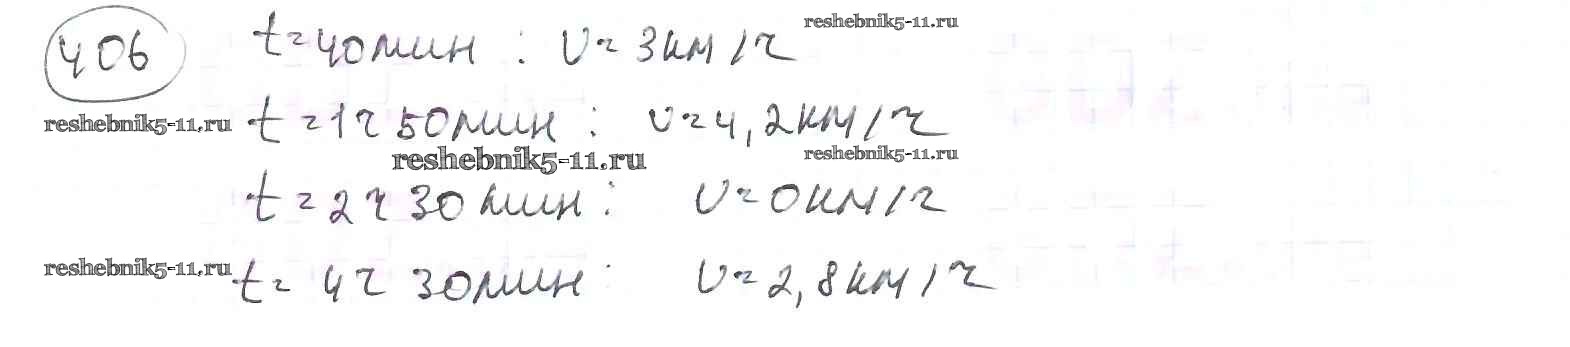 406 t=40мин : v=3км/ч reshebnik5-11.ru
reshebnik5-11.ru t=1ч 50мин : v=4,2км/ч
reshebnik5-11.ru reshebnik5-11.ru
t=2ч 30мин : v=0км/ч
reshebnik5-11.ru t=4ч 30мин : v=2,8км/ч